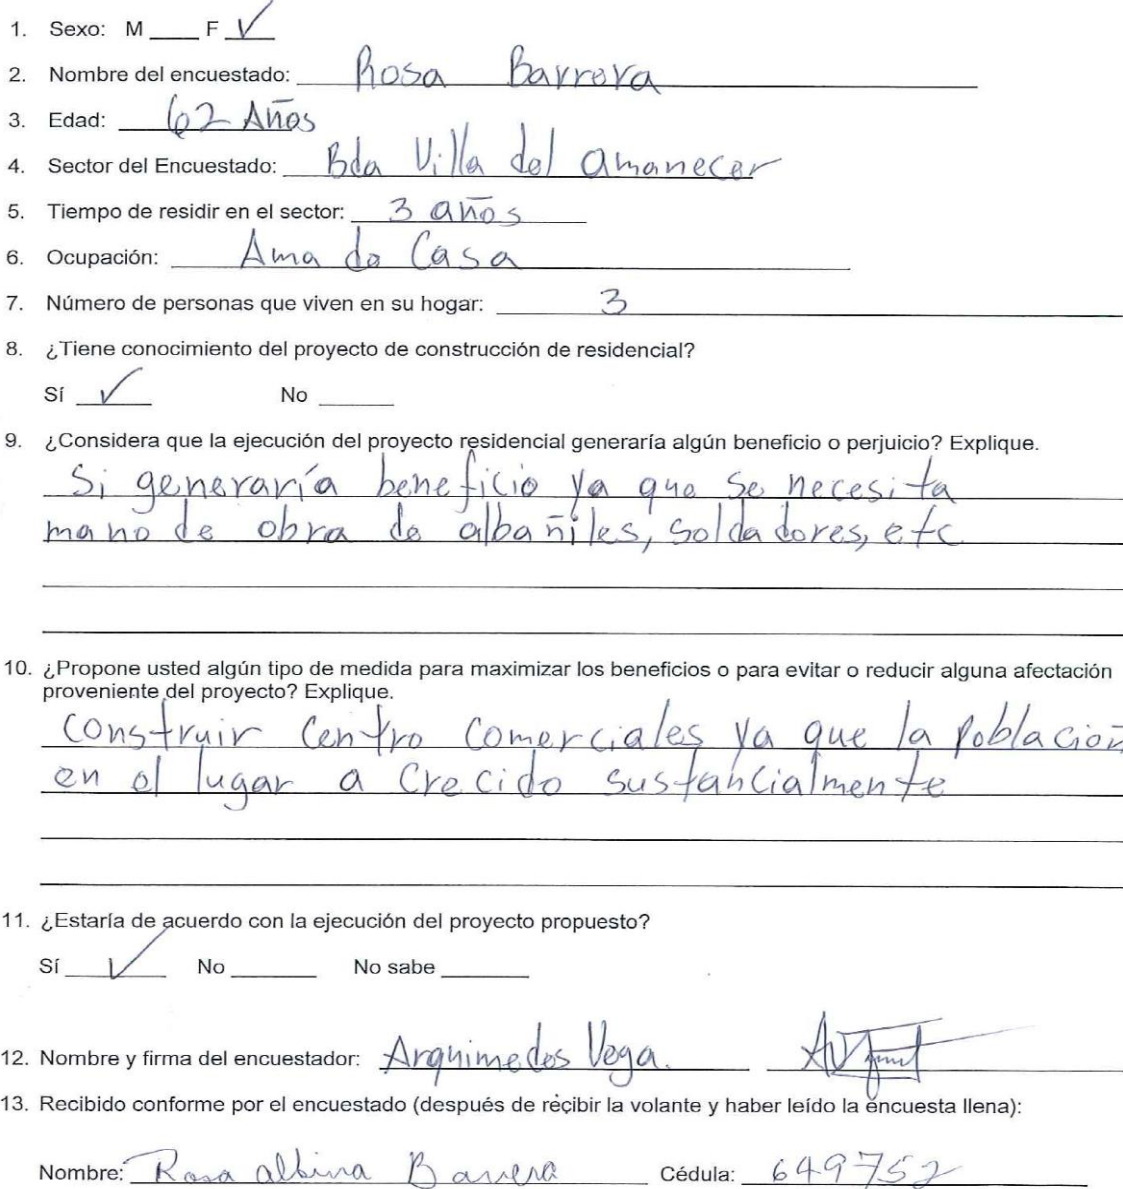 1. Sexo: M ____ F ✓
2. Nombre del encuestado: Rosa Barrera
3. Edad: 62 Años
4. Sector del Encuestado: Bda Villa del amanecer
5. Tiempo de residir en el sector: 3 años
6. Ocupación: Ama de Casa
7. Número de personas que viven en su hogar: 3
8. ¿Tiene conocimiento del proyecto de construcción de residencial?
Sí ✓ No ____
9. ¿Considera que la ejecución del proyecto residencial generaría algún beneficio o perjuicio? Explique.
Si generaría beneficio ya que se necesita
mano de obra de albañiles, soldadores, etc
10. ¿Propone usted algún tipo de medida para maximizar los beneficios o para evitar o reducir alguna afectación
proveniente del proyecto? Explique.
construir Centro comerciales ya que la población
en el lugar a crecido sustancialmente
11. ¿Estaría de acuerdo con la ejecución del proyecto propuesto?
Sí ✓ No ____ No sabe ____
12. Nombre y firma del encuestador: Arquimedes Vega.
13. Recibido conforme por el encuestado (después de recibir la volante y haber leído la encuesta llena):
Nombre: Rosa albina Barrera Cédula: 649752